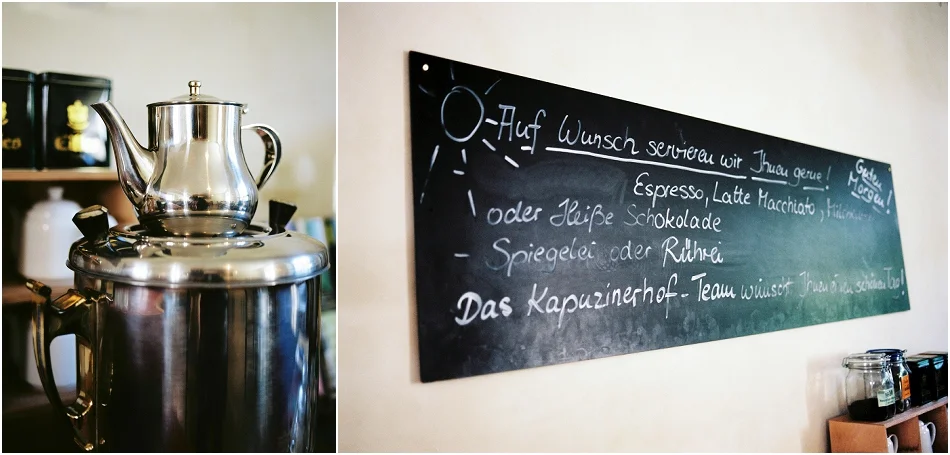 Auf Wunsch servieren wir Ihnen gerne!
Guten
Morgen!
Espresso, Latte Macchiato,
oder Heiße Schokolade
- Spiegelei oder Rührei
Das Kapuzinerhof-Team wünscht Ihnen einen schönen Tag!